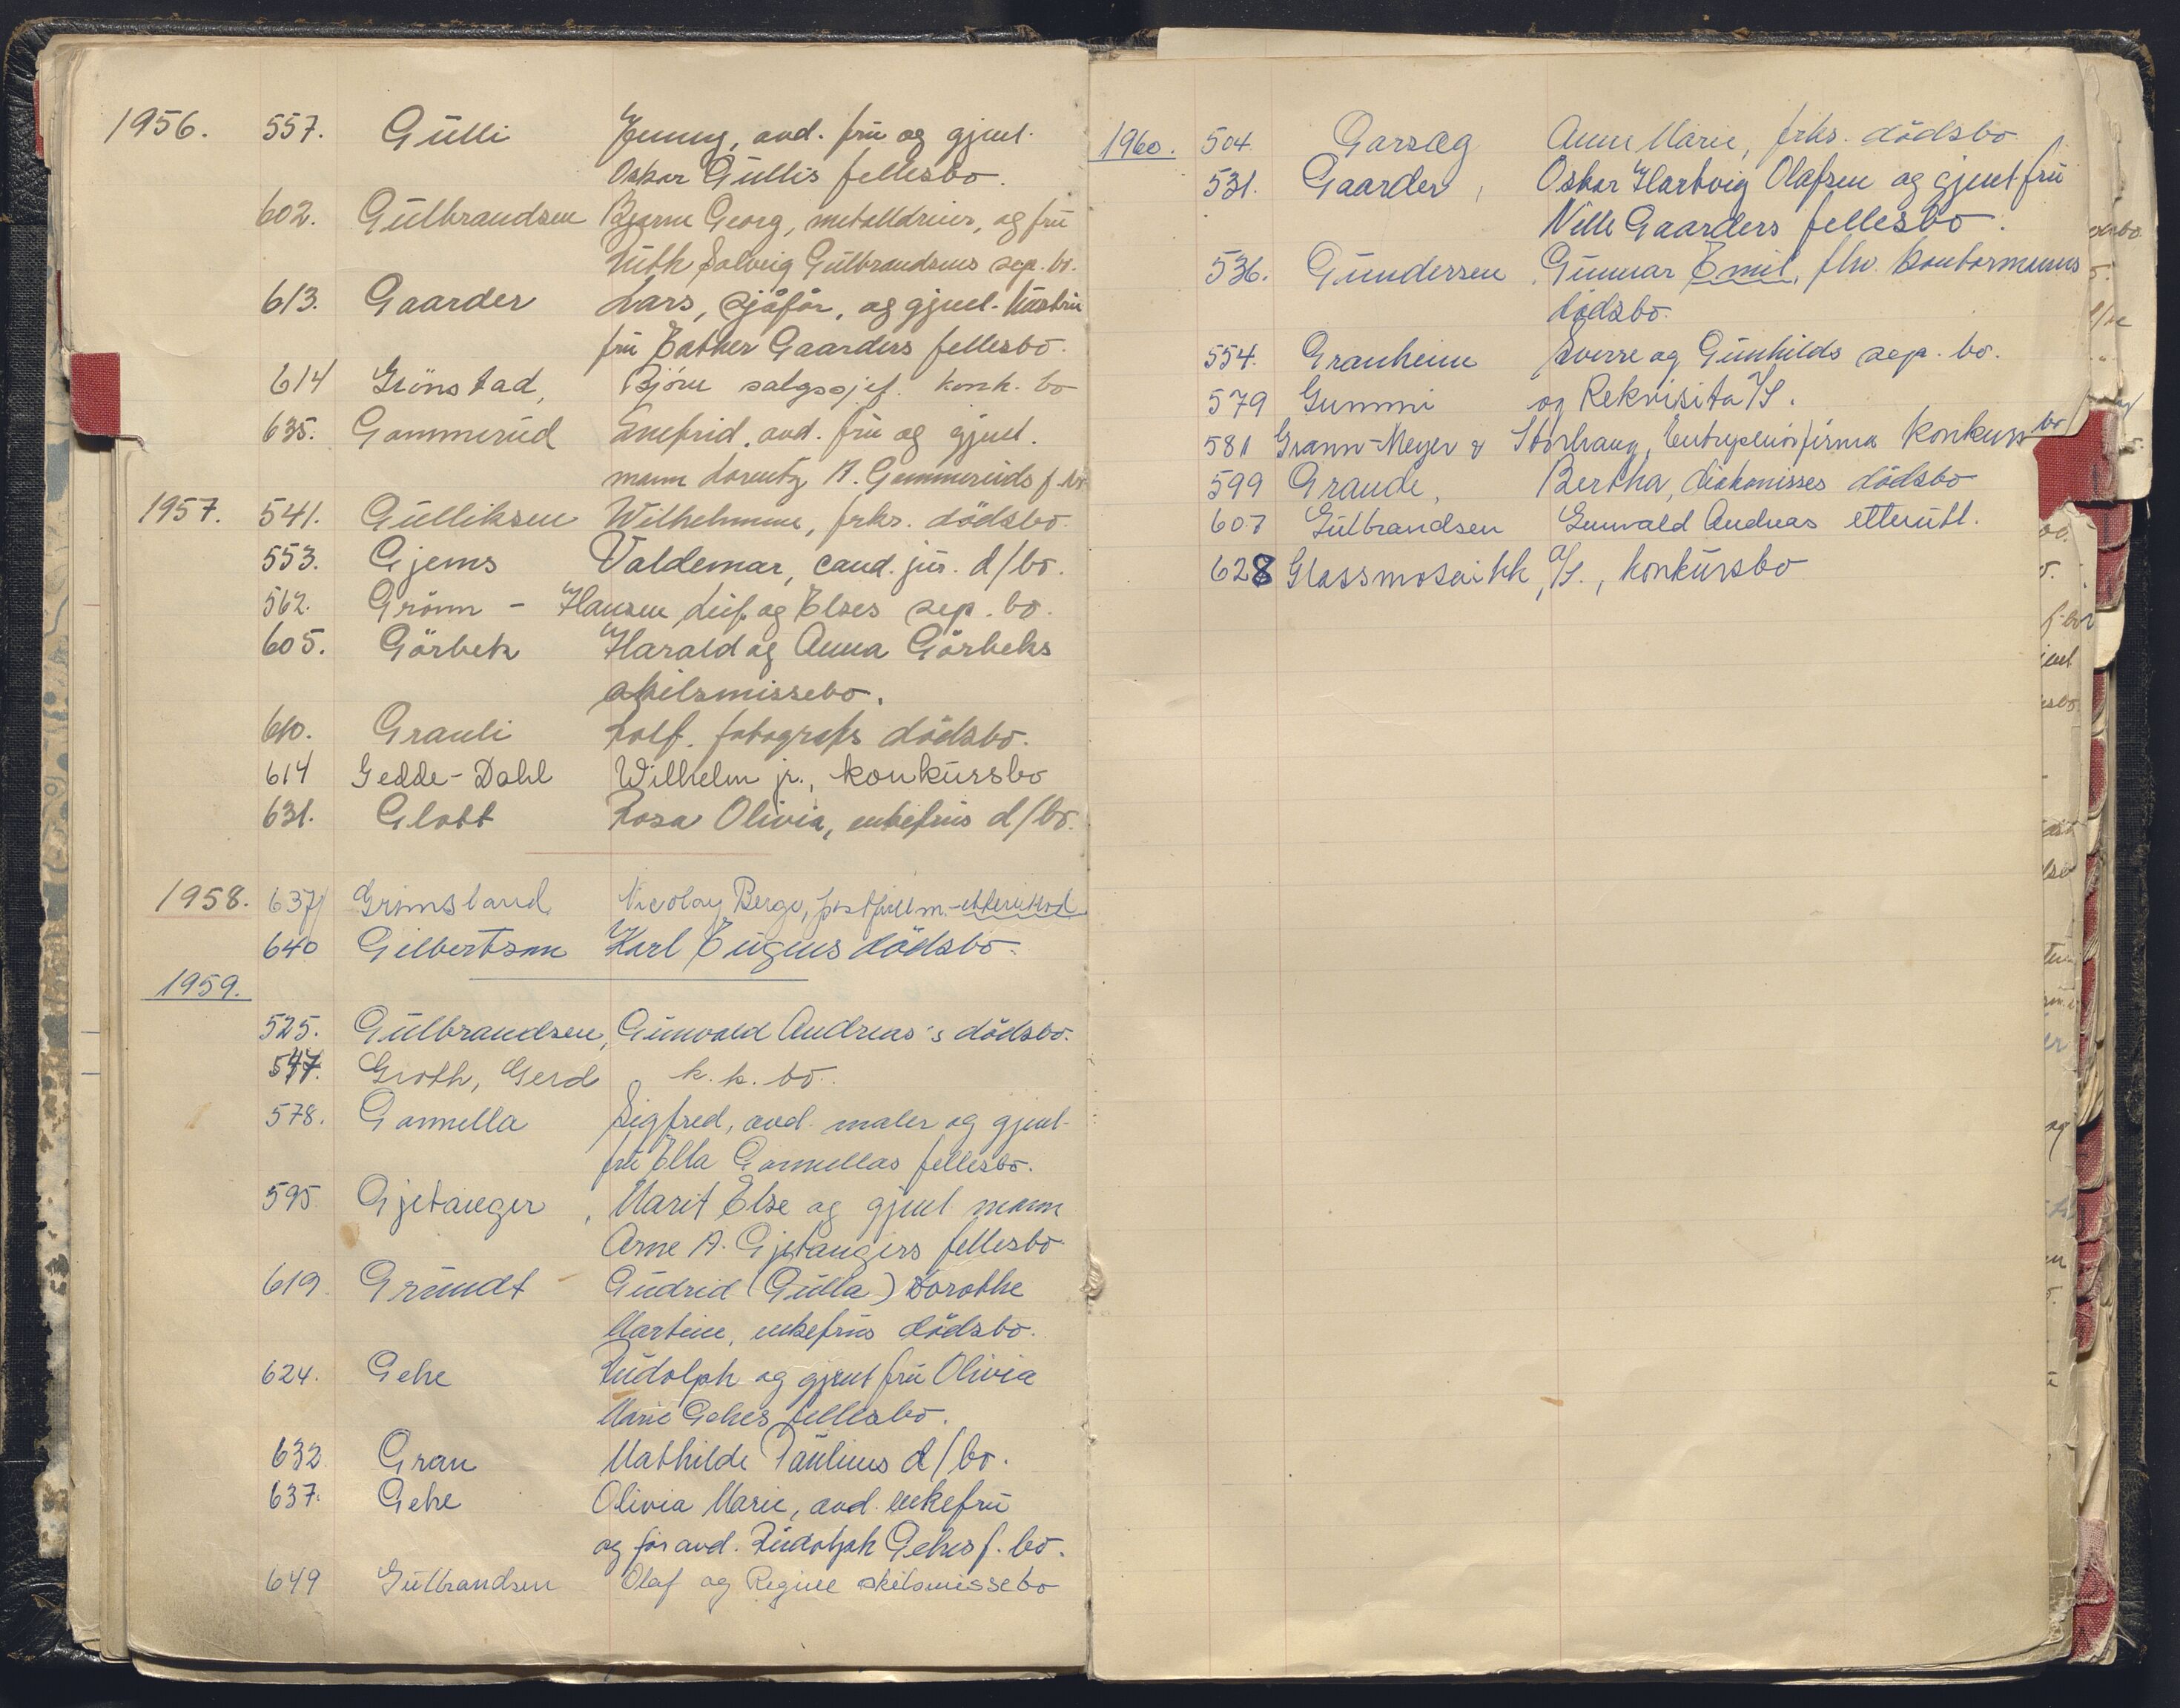 1956. 557. Gulli Jenny, avd. fru og gjenl.
Oskar Gullis fellesbo.
602. Gulbrandsen Bjarne Georg, metalldreier, og fru
Ruth Solveig Gulbrandsens sep. bo.
613. Gaarder Lars, sjåfør, og gjenl. hustru
fru Esther Gaarders fellesbo.
614 Grönstad, Björn salgssjef. konk. bo
635. Gommerud Snefrid, avd. fru og gjenl.
mann Lorentz A. Gommeruds f. bo
1957. 541. Gulliksen Wilhelmine, frks. dödsbo.
553. Gjems Valdemar, cand. jur. d/bo.
562. Grönn - Hansen Leif og Elses sep. bo.
605. Görbek Harald og Anna Görbeks
skilsmissebo.
610. Grauli Rolf. fotografs dödsbo.
614 Gedde-Dahl Wilhelm jr., konkursbo
631. Glott Rosa Olivia, enkefrus d/bo.
1958. 637 Grimsland Nicolay Berge, postfullm.
640 Gilbertson Karl Eugens dödsbo.
1959.
525. Gulbrandsen, Gunvald Andreas's dödsbo.
547. Groth, Gerd k. k. bo.
578. Gamella Sigfred, avd. maler og gjenl.
fru Ella Gamellas fellesbo.
595 Gjetanger, Marit Else og gjenl. mann
Arne A. Gjetangers fellesbo
619. Grundt Gudrid (Gulla) Dorothe
Martine, enkefrus dödsbo.
624. Gehe Rudolph og gjenl fru Olivia
Marie Gehes fellesbo.
632. Gran Mathilde Paulines d/bo.
637. Gehe Olivia Marie, avd. enkefru
og før avd. Rudolph Gehes f. bo.
649 Gulbrandsen Olaf og Regine skilsmissebo
1960. 504. Garsæg Anne Marie, frks. dödsbo
531. Gaarder, Oskar Hartvig Olafsen og gjenl fru
Nille Gaarders fellesbo.
536. Gundersen, Gunnar Emil, fhv. kontormanns
dödsbo.
554. Granheim Sverre og Gunhilds sep. bo.
579 Gummi og Rekvisita A/S.
581 Grann-Meyer & Storhaug, Entreprenörfirma konkursbo
599 Grande, Bertha, diakonisses dödsbo
607 Gulbrandsen Gunvald Andreas etterutl.
628 Glassmosaikk, A/S., konkursbo